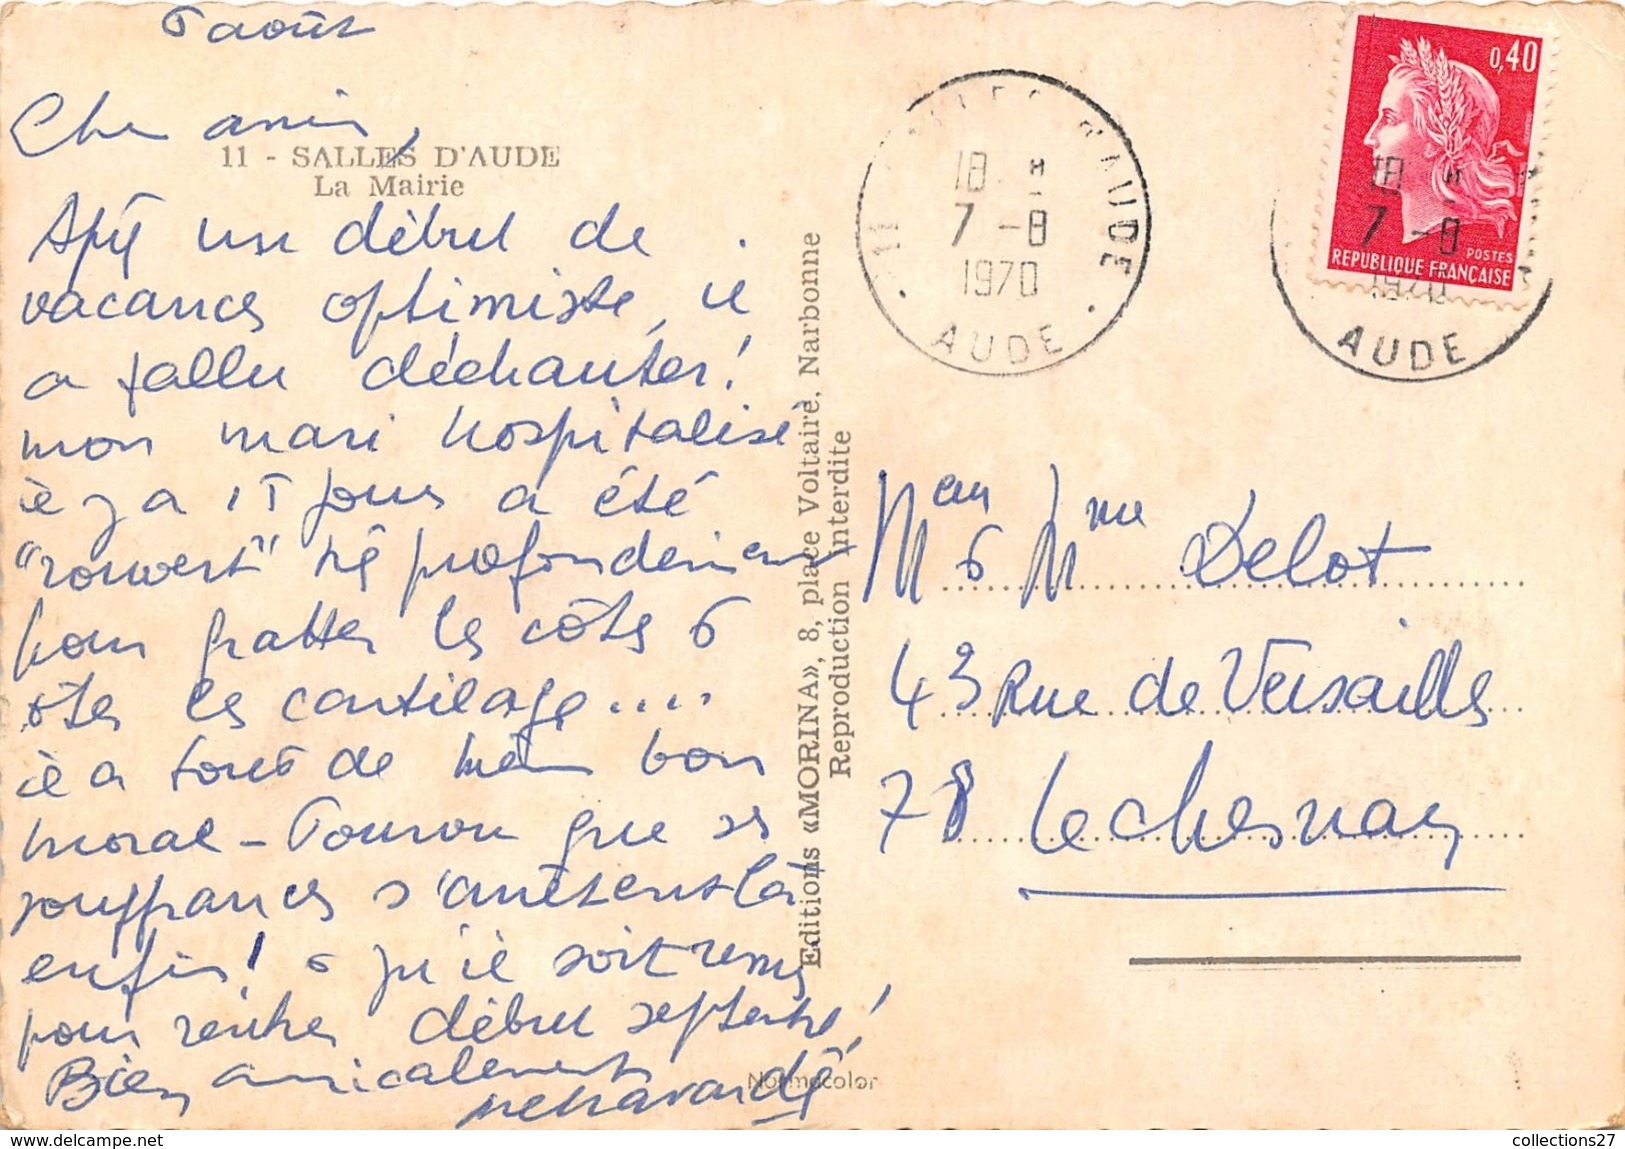 7 août
Cher amis,
11 - SALLES D'AUDE
La Mairie
Après un début de
vacances optimiste, il
a fallu déchanter !
mon mari hospitalisé
il y a 15 jours a été
"rouvert" très profondément
pour gratter les côtes &
ôter les cartilage....
il a tout de même bon
moral - Pourvu que ses
souffrances s'arrêtent là
enfin ! & qu'il soit remis
pour rentrer début septembre !
Bien amicalement
Editions «MORINA», 8, place Voltaire, Narbonne
Reproduction interdite
Normacolor
11 SALLES D'AUDE
18 H
7 -8
1970
AUDE
0,40
POSTES
REPUBLIQUE FRANÇAISE
18 H
7 -8
1970
AUDE
& Mme Delot
43 Rue de Versailles
78 Le Chesnay
collections27